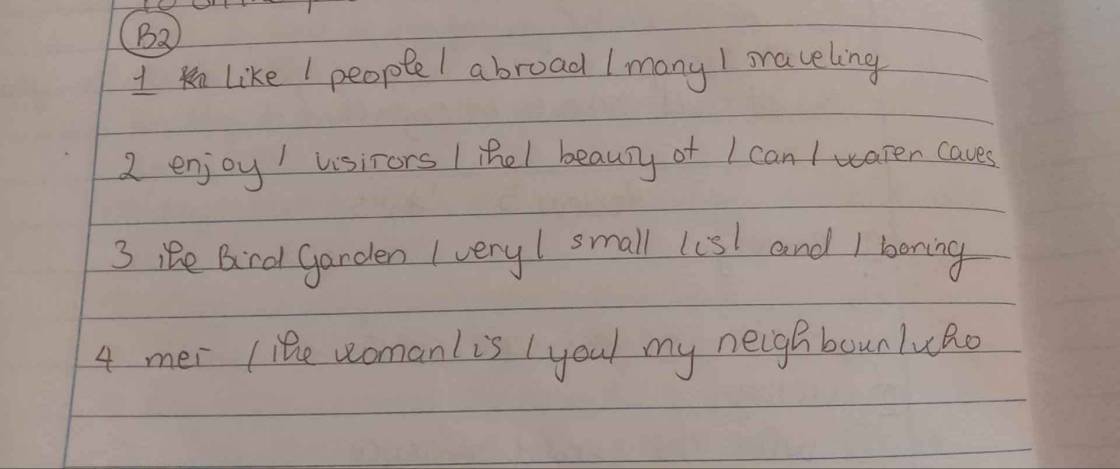 B2
1 Like / people / abroad / many / traveling
2 enjoy / visitors / the / beauty of / can / water caves
3 the Bird Garden / very / small / is / and / boring
4 met / the woman / is / you / my neighbour / who